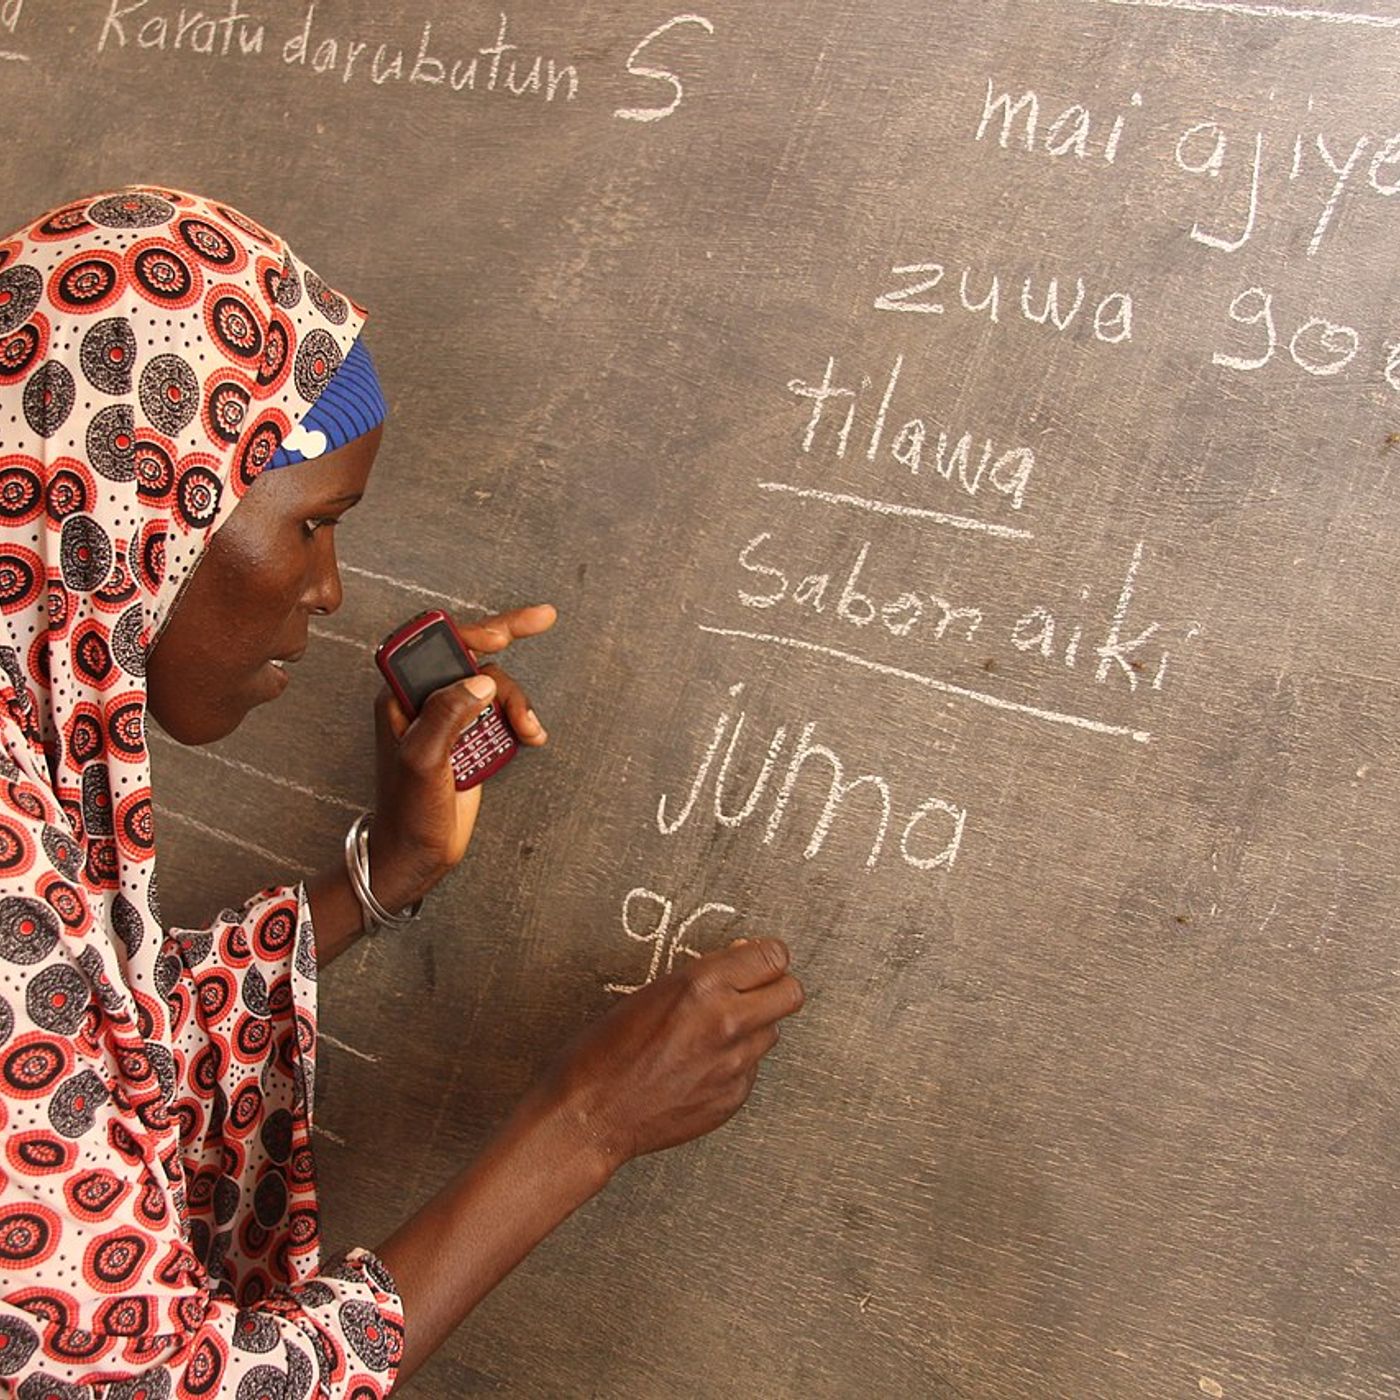 Karatu darubutun S
mai ajiye
zuwa
tilawa
Sabon aiki
juma